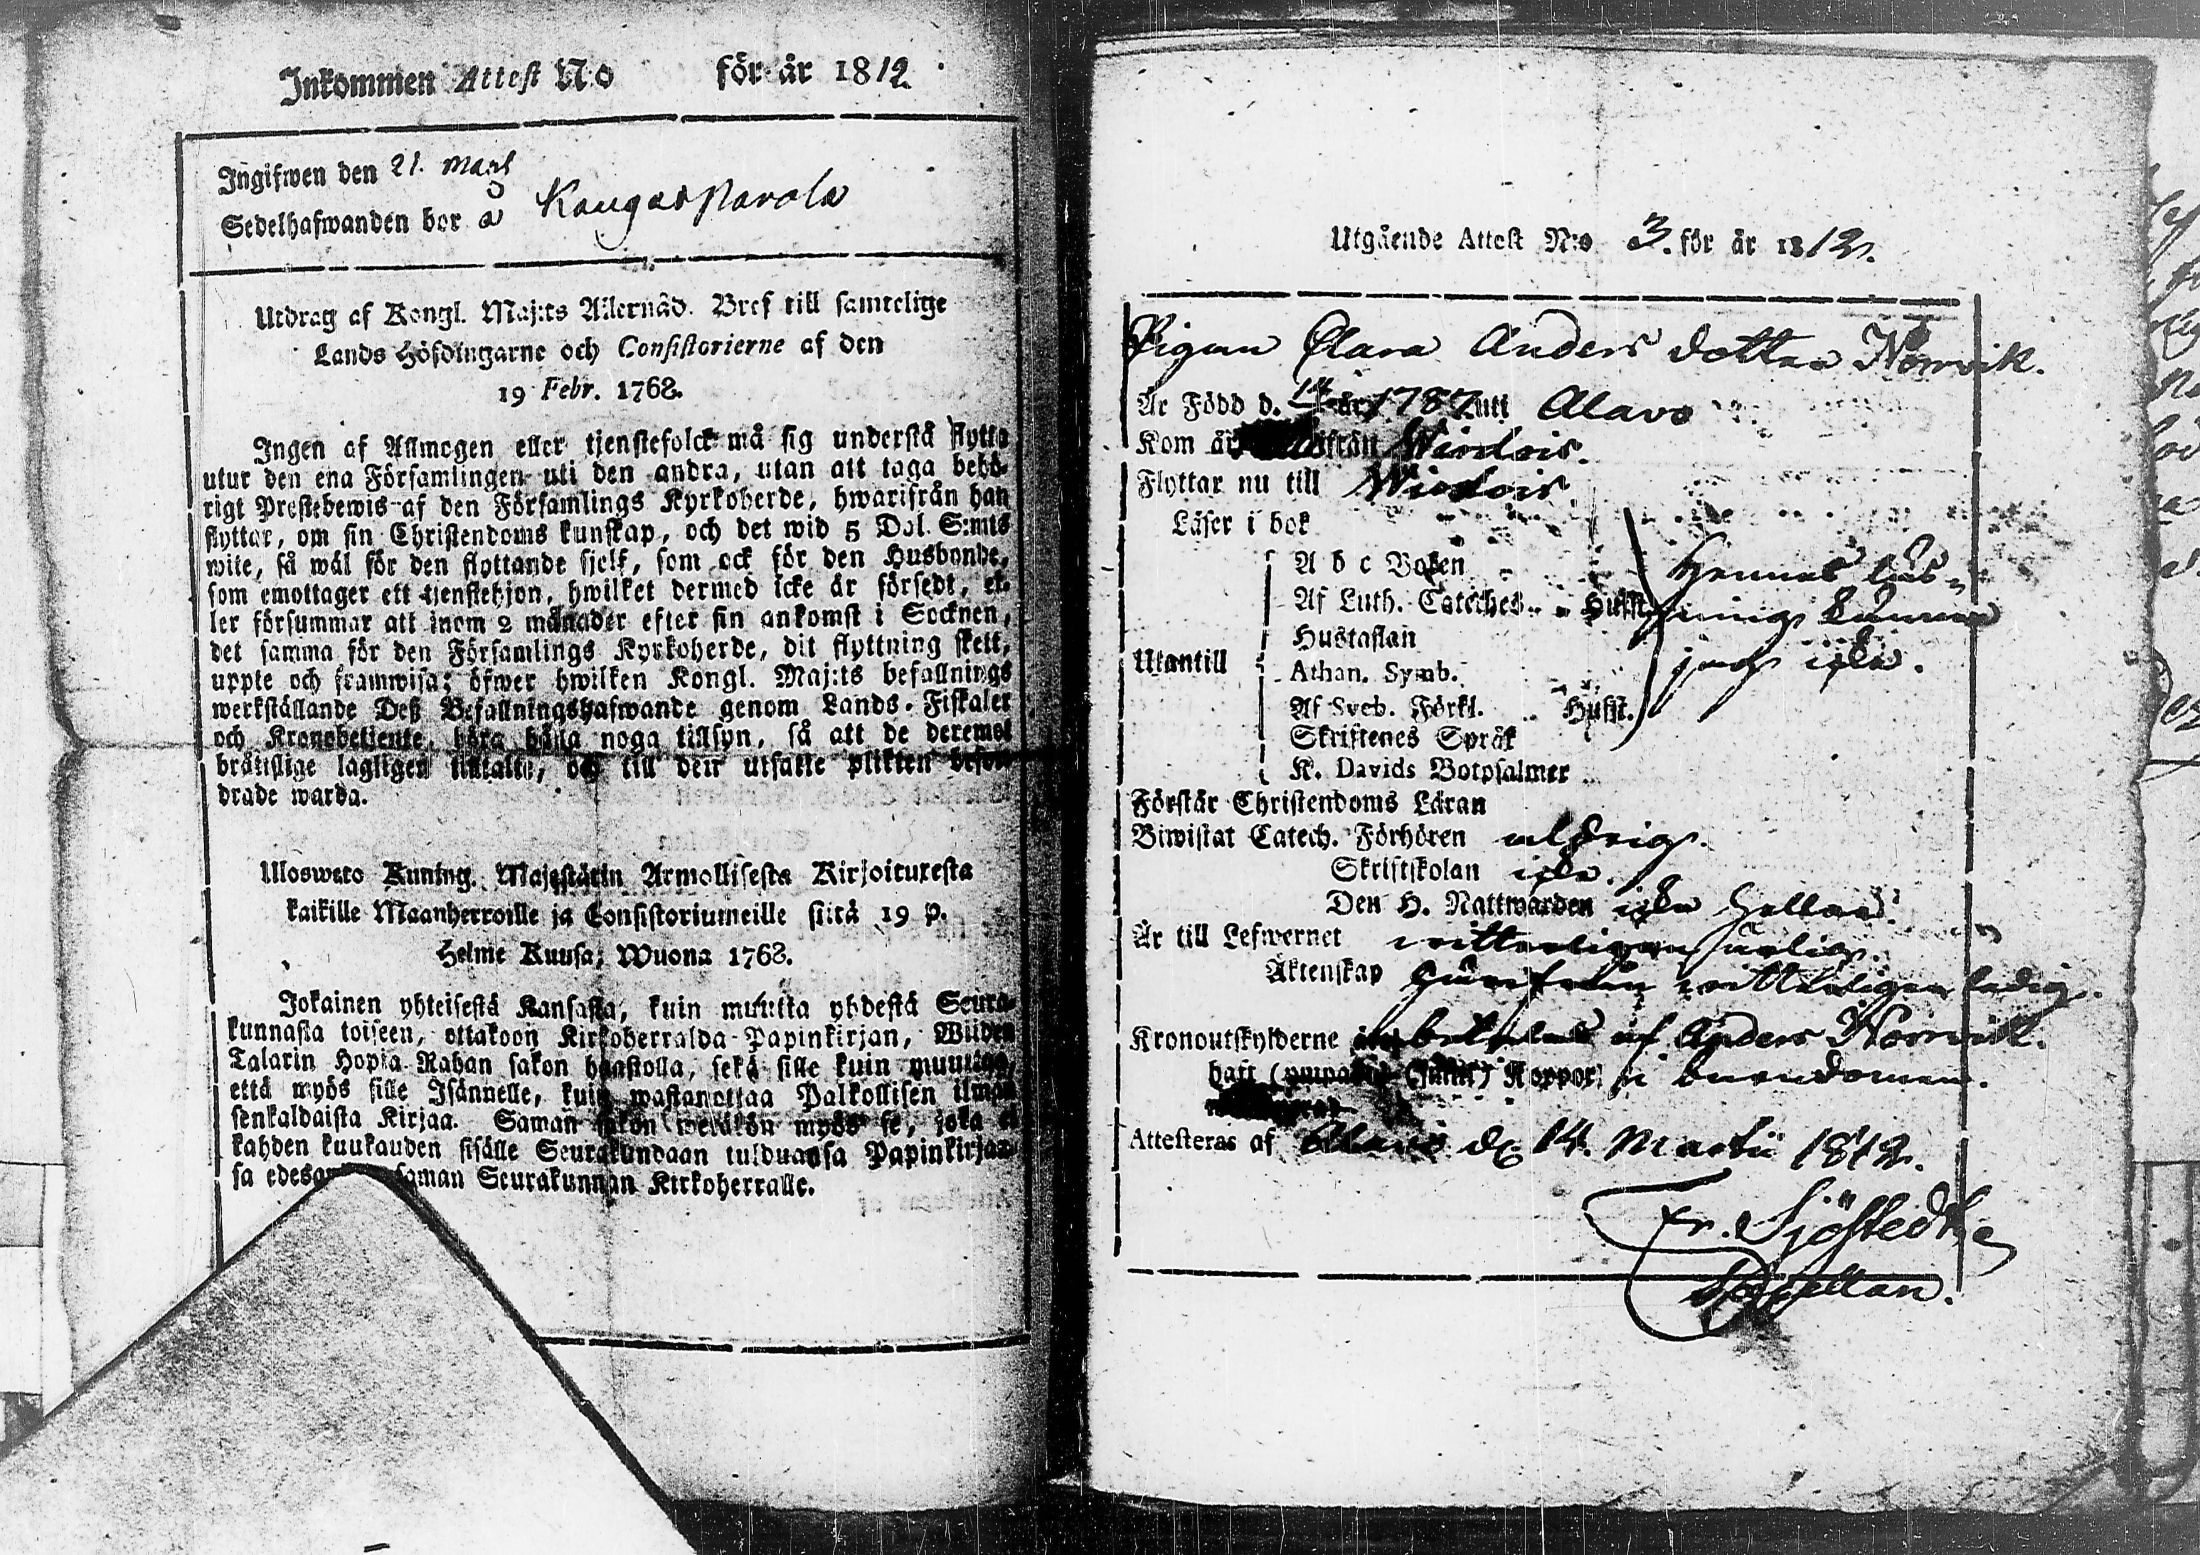 Inkommen Attest No för år 1812.
Ingifwen den 21. Mart
Sedelhafwanden bor å Kangas Parola
Utdrag af Kongl. Maj:ts Allernåd. Bref till samtelige
Lands Höfdingarne och Consistorierne af den
19 Febr. 1768.
Ingen af Allmogen eller tjenstefolck må sig understå flytta
utur den ena Församlingen uti den andra, utan att taga behö-
rigt Prestebewis af den Församlings Kyrkoherde, hwarifrån han
flyttar, om sin Christendoms kunskap, och det wid 5 Dal. S:mts
wite, så wäl för den flyttande sjelf, som ock för den Husbonde,
som emottager ett tjenstehjon, hwilket dermed icke är försedt, el-
ler försummar att inom 2 månader efter sin ankomst i Socknen,
det samma för den Församlings Kyrkoherde, dit flyttning skett,
uppte och framwisa; öfwer hwilken Kongl. Maj:ts befallnings
werkställande Deß Befallningshafwande genom Lands-Fiskaler
och Kronobetjente, böra hålla noga tillsyn, så att de deremot
bråttslige lagligen tiltalte, och till den utsatte plikten befor-
drade warda.
Uloswето Kuning. Majestätin Armollisesta Kirjoituxesta
kaikille Maanherroille ja Consistoriumeille siitä 19 p.
Helme Kuusa, Wuona 1768.
Jokainen yhteisestä Kansasta, kuin muutta yhdestä Seura-
kunnasta toiseen, ottakoon Kirkoherralda Papinkirjan, Wiiden
Talarin Hopia Rahan sakon haastolla, sekä sille kuin muuttaa,
että myös sille Isännelle, kuin wastanottaa Palkollisen ilman
senkaldaista Kirjaa. Saman sakon wetäkön myös se, joka ei
kahden kuukauden sisälle Seurakundaan tulduansa Papinkirjaan-
sa edesan saman Seurakunnan Kirkoherralle.
Utgående Attest N:o 3. för år 1812.
Pigan Clara Anders dotter Norrvik.
Är Född d. 14 år 1787 uti Alavo
Kom år ifrån Wirdois.
Flyttar nu till Wirdois.
Läser i bok
A b c Boken
Af Luth. Cateches. Hufst.
Hustaflan
Utantill Athan. Symb.
Af Sveb. Förkl. Hufst.
Skriftenes Språk
K. Davids Botpsalmer
Hennes läs-
ning känner
jag icke.
Förstår Christendoms Läran
Biwistat Catech. Förhören aldrig.
Skriftskolan icke.
Den H. Nattwarden icke heller.
Är till Lefwernet witterligen ärlig.
Äktenskap härifrån witterligen ledig.
Kronoutskylderne betalas af Anders Norrvik.
haft Koppor i barndomen.
Attesteras af Alavo d. 14. Martii 1812.
Er. Sjöstedt
Capellan.